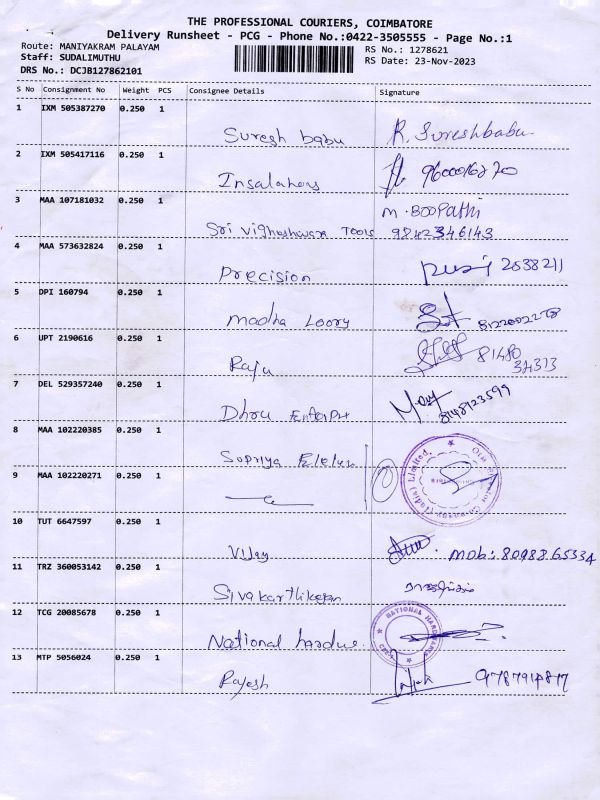 THE PROFESSIONAL COURIERS, COIMBATORE
Delivery Runsheet - PCG - Phone No.:0422-3505555 - Page No.:1
Route: MANIYAKRAM PALAYAM RS No.: 1278621
Staff: SUDALIMUTHU RS Date: 23-Nov-2023
DRS No.: DCJB127862101
S No Consignment No Weight PCS Consignee Details Signature
1 IXM 505387270 0.250 1
Suresh babu R. Sureshbabu
2 IXM 505417116 0.250 1
9600016270
3 MAA 107181032 0.250 1
M. BOOPathi
Sri Vighneshwara Tools 9842346143
4 MAA 573632824 0.250 1
Precision 2538211
5 DPI 160794 0.250 1
Madha Loory 8122002278
6 UPT 2190616 0.250 1
Raju 81480
34373
7 DEL 529357240 0.250 1
Dhru 8148923599
8 MAA 102220385 0.250 1
Supriya
9 MAA 102220271 0.250 1
10 TUT 6647597 0.250 1
Vijay Mob: 8098865334
11 TRZ 360053142 0.250 1
Sivakarthikeyan
12 TCG 20085678 0.250 1
National NATIONAL HARDWARE
13 MTP 5056024 0.250 1
Rajesh